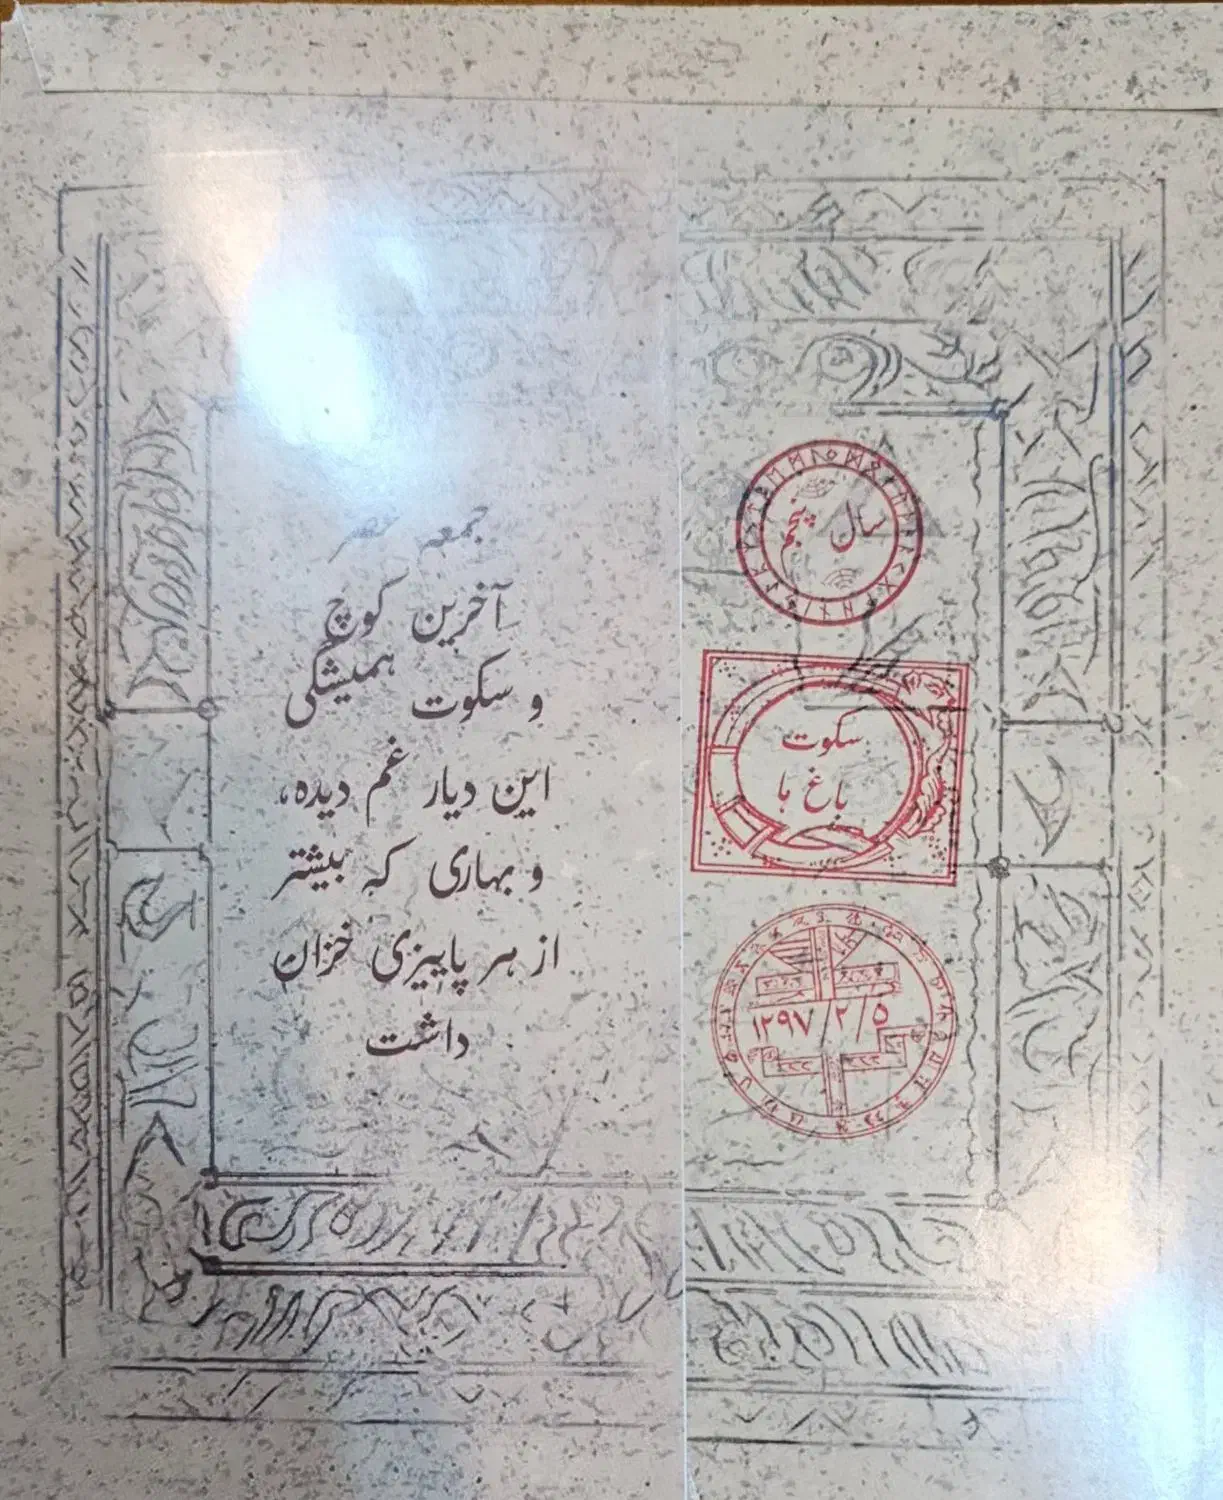 جمعه عصر
آخرین کوچ
و سکوت همیشگی
این دیار غم دیده،
و بهاری که بیشتر
از هر پاییزی خزان
داشت
سال پنجم
سکوت
باغ ها
۱۲۹۷/۲/۵